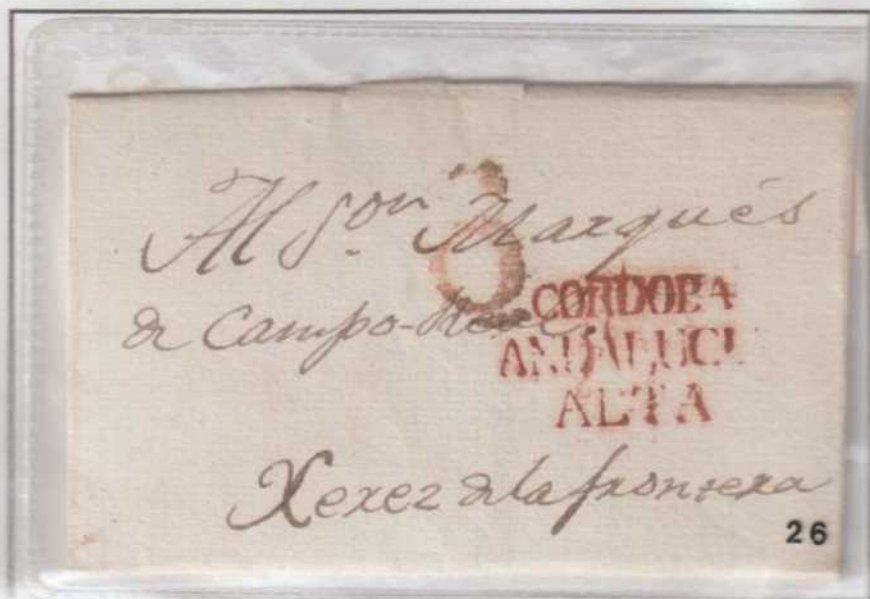 8
Al S.or Marqués
de Campo-Real
CORDOBA
ANDALUCI
ALTA
Xerez de la frontera
26